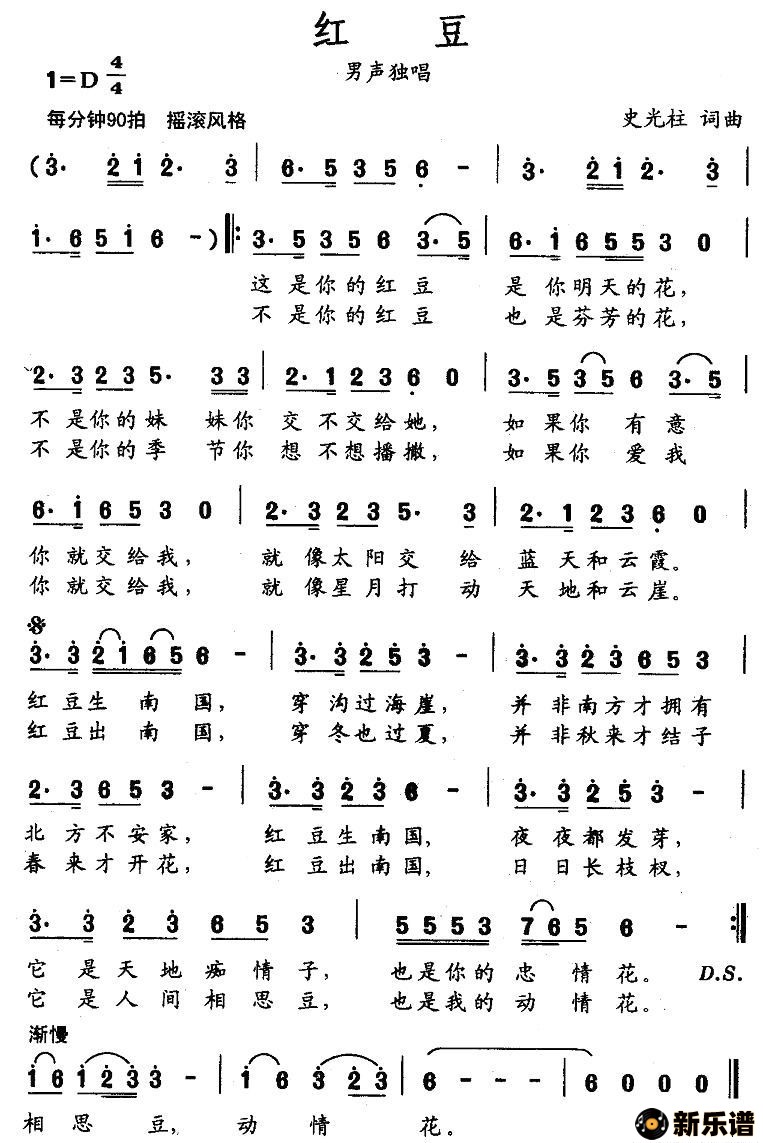 红 豆
1=D 4/4
男声独唱
每分钟90拍 摇滚风格
史光柱 词曲
(3· 2 1 2· 3 | 6· 5 3 5 6 - | 3· 2 1 2· 3 |
1· 6 5 1 6 -) |: 3· 5 3 5 6 3· 5 | 6· 1 6 5 5 3 0 |
这 是你的红豆 是 你明天的花，
不 是你的红豆 也 是芬芳的花，
2· 3 2 3 5· 3 3 | 2· 1 2 3 6 0 | 3· 5 3 5 6 3· 5 |
不 是你的妹 妹你 交 不交给她， 如 果你 有意
不 是你的季 节你 想 不想播撒， 如 果你 爱我
6· 1 6 5 3 0 | 2· 3 2 3 5· 3 | 2· 1 2 3 6 0 |
你 就交给我， 就 像太阳交 给 蓝 天和云霞。
你 就交给我， 就 像星月打 动 天 地和云崖。
3· 3 2 1 6 5 6 - | 3· 3 2 5 3 - | 3· 3 2 3 6 5 3 |
红 豆生 南 国， 穿 沟过海崖， 并 非南方才拥有
红 豆出 南 国， 穿 冬也过夏， 并 非秋来才结子
2· 3 6 5 3 - | 3· 3 2 3 6 - | 3· 3 2 5 3 - |
北 方不安家， 红 豆生南国， 夜 夜都发芽，
春 来才开花， 红 豆出南国， 日 日长枝杈，
3· 3 2 3 6 5 3 | 5 5 5 3 7 6 5 6 - :|
它 是天地痴情子， 也是你的忠 情花。 D.S.
它 是人间相思豆， 也是我的动 情花。
渐慢
1 6 1 2 3 3 - | 1 6 3 2 3 | 6 - - - | 6 0 0 0 ||
相 思 豆， 动 情 花。
新乐谱